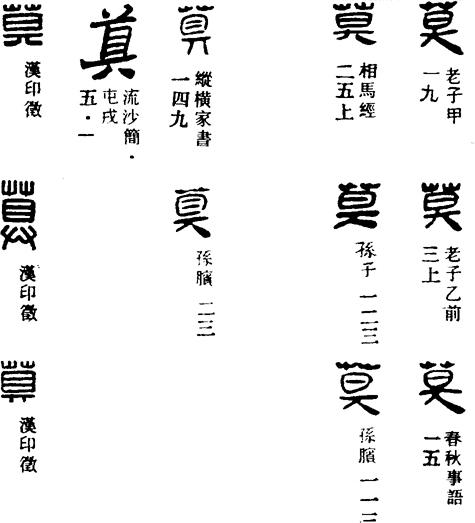 莫
老子甲
一九
莫
老子乙前
三上
莫
春秋事語
一五
莫
相馬經
二五上
莫
孫子 一二三
莫
孫臏 一一三
莫
縱橫家書
一四九
莫
孫臏 二三
莫
流沙簡·
屯戍
五·一
莫
漢印徵
莫
漢印徵
莫
漢印徵